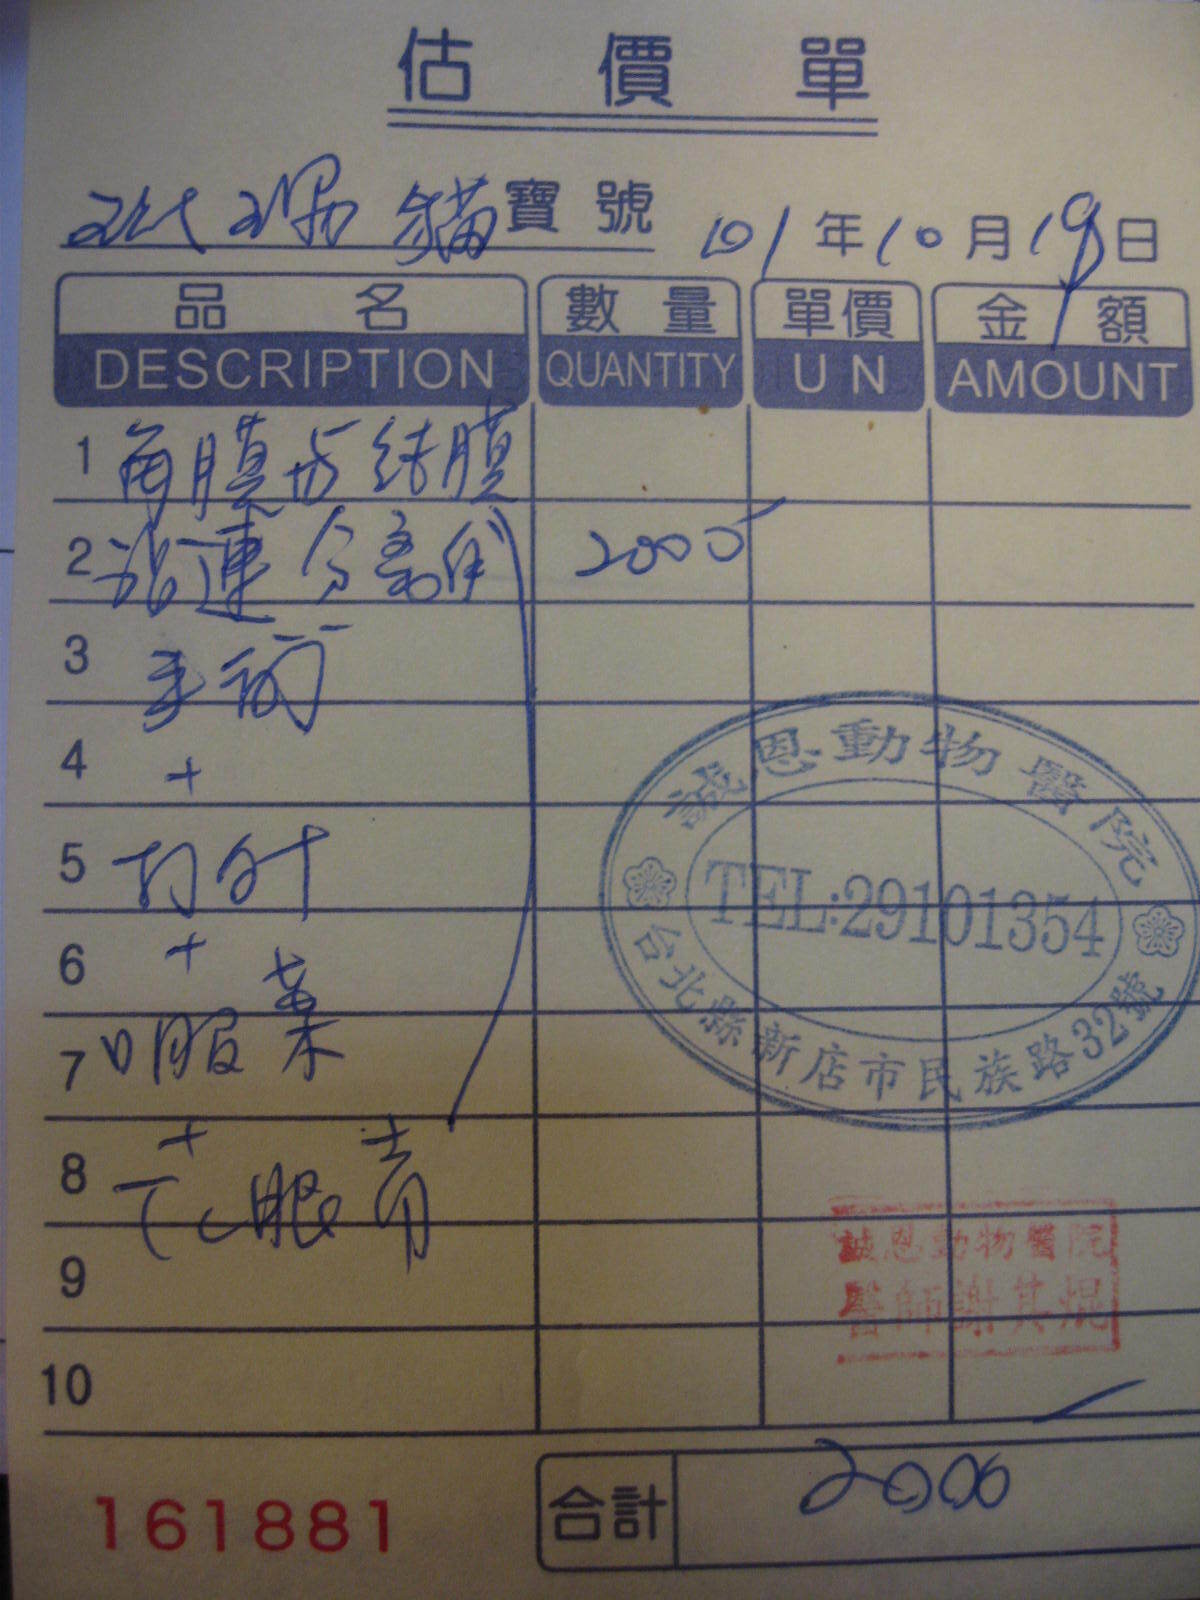 估價單
玳瑁貓寶號 101年10月19日
品名 數量 單價 金額
DESCRIPTION QUANTITY U N AMOUNT
1 角膜與結膜
2 沾連分離術 2000
3 手術
4 +
5 打針
6 +
7 口服藥
+
8 眼膏
9
10
誠恩動物醫院
TEL:29101354
台北縣新店市民族路32號
誠恩動物醫院
醫師謝其焜
合計 2000
161881